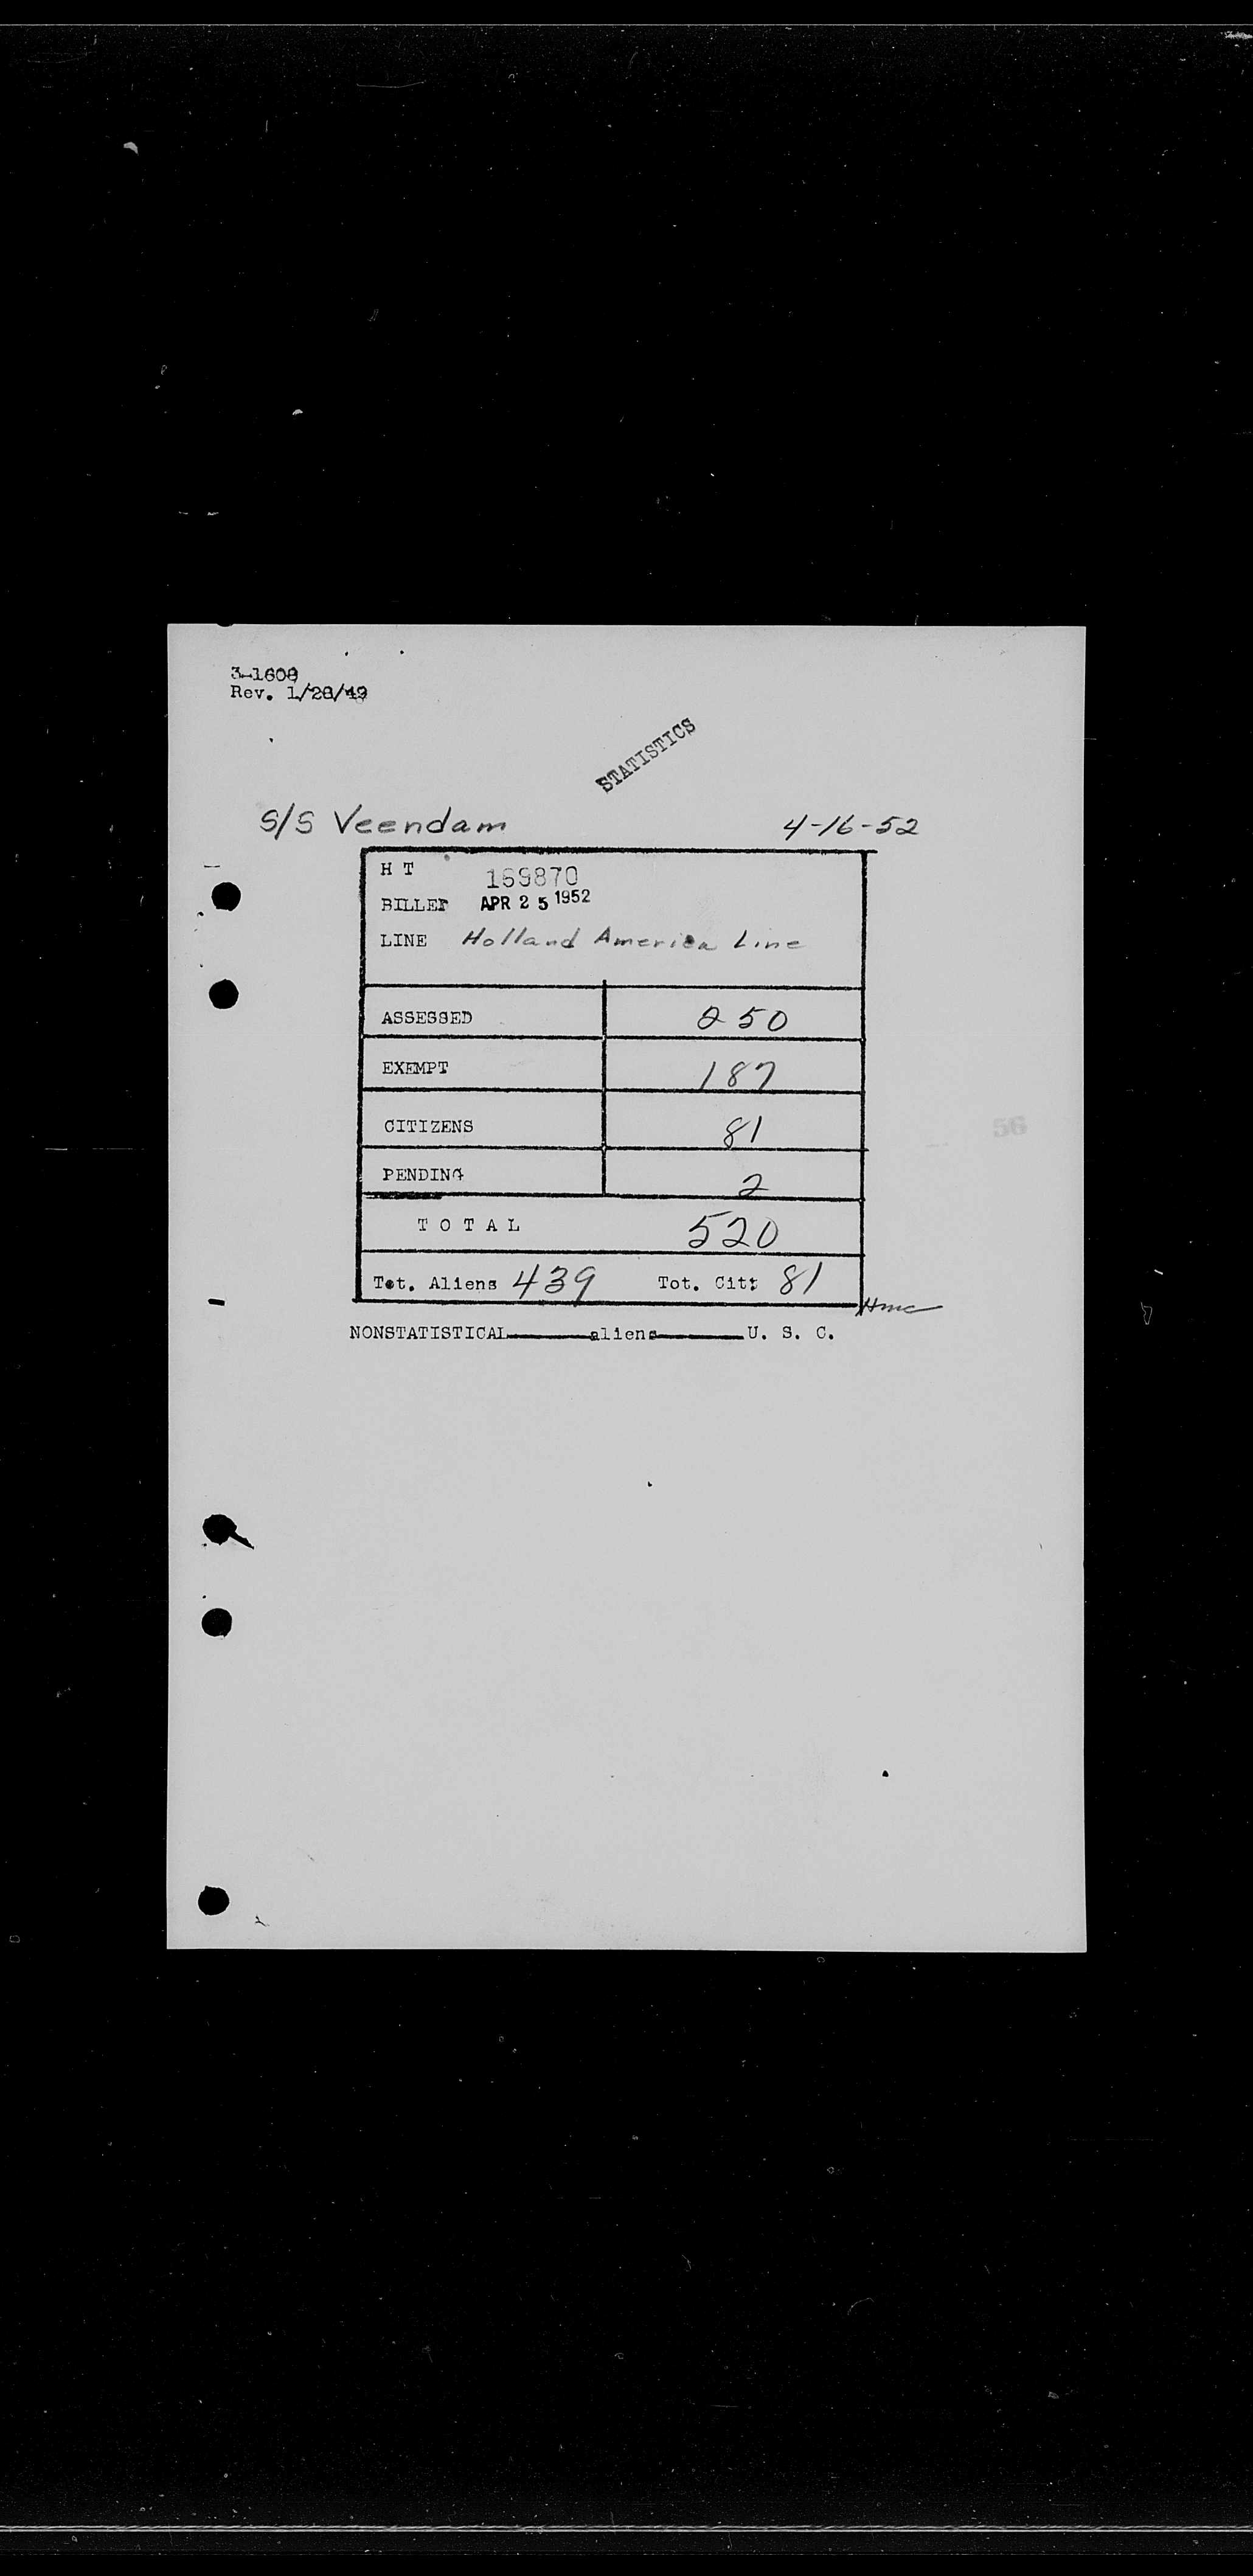 3-1608
Rev. 1/28/49
STATISTICS
S/S Veendam 4-16-52
H T 169870
BILLED APR 25 1952
LINE Holland America Line
ASSESSED 250
EXEMPT 187
CITIZENS 81
PENDING 2
T O T A L 520
Tot. Aliens 439 Tot. Cit: 81
Hmc
NONSTATISTICAL aliens U. S. C.
56